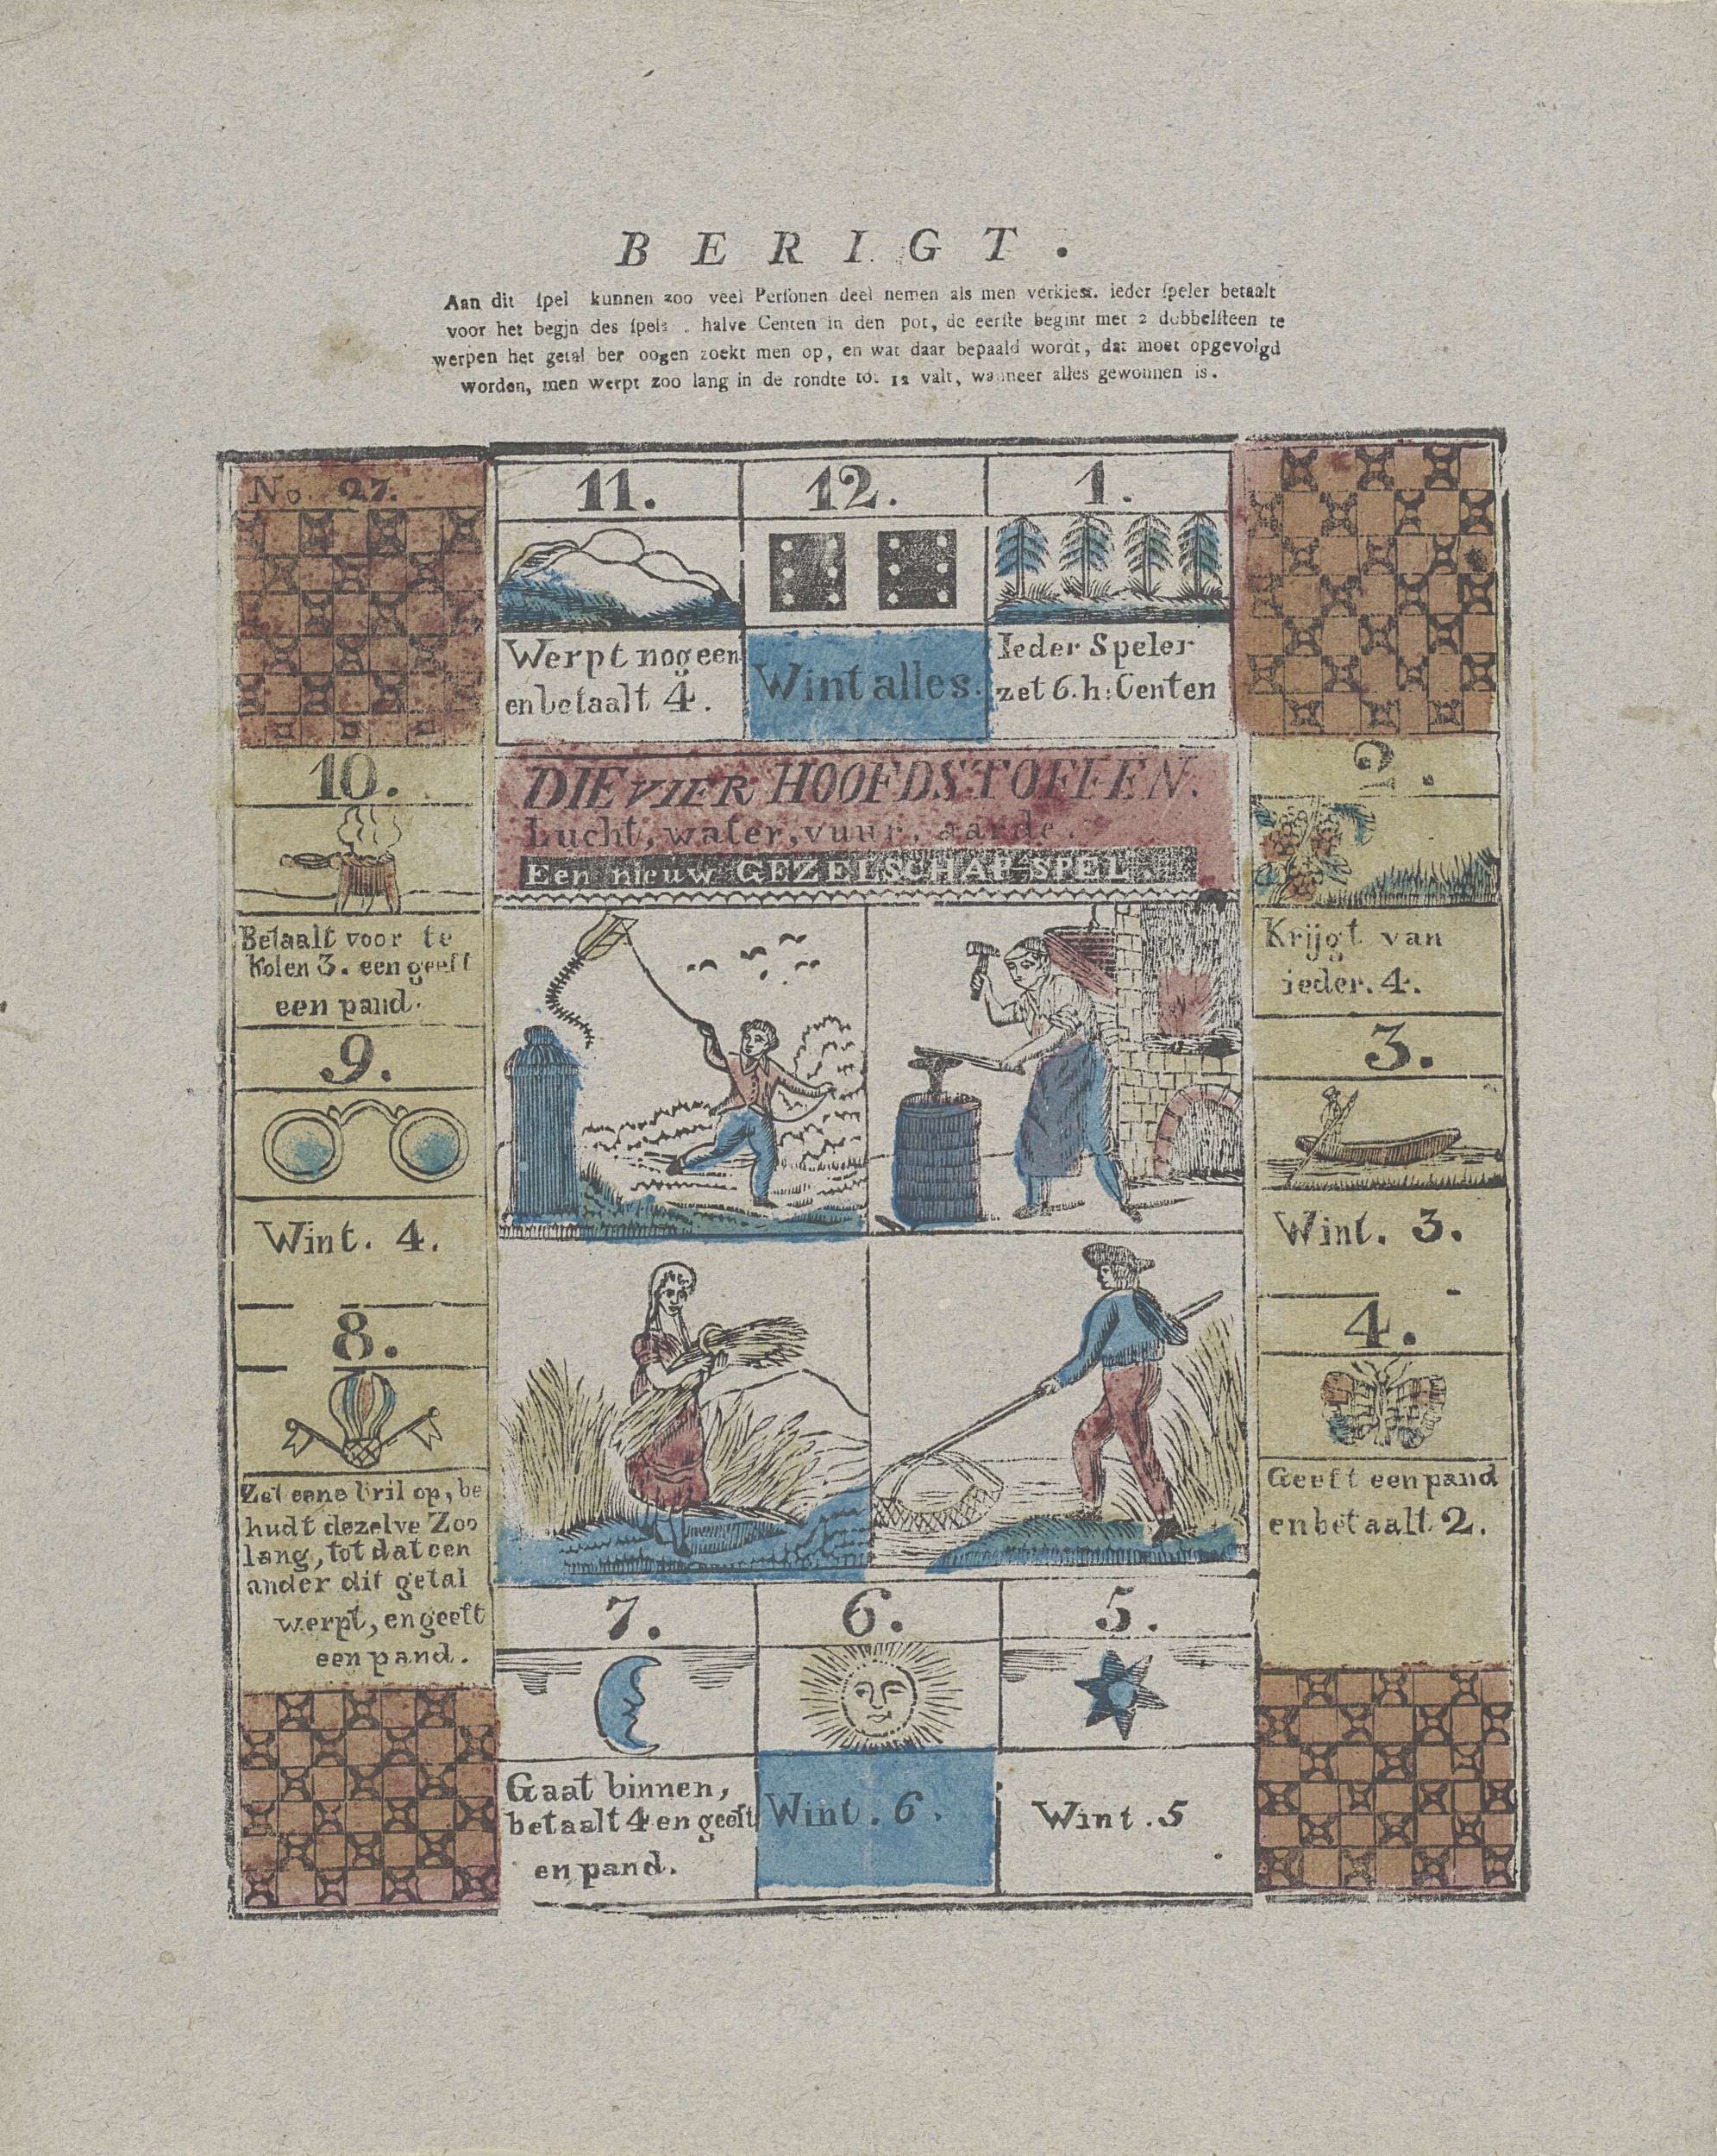 BERIGT.
Aan dit ſpel kunnen zoo veel Perſonen deel nemen als men verkiest. ieder ſpeler betaalt
voor het begjn des ſpels . halve Centen in den pot, de eerſte begint met 2 dobbelſteen te
werpen het getal ber oogen zoekt men op, en wat daar bepaald wordt, dat moet opgevolgd
worden, men werpt zoo lang in de rondte tot 12 valt, wanneer alles gewonnen is.
No. 27.
11.
Werpt nog een
en betaalt 4.
12.
Wint alles.
1.
Ieder Speler
zet 6. h: Centen
DIE VIER HOOFDSTOFFEN.
Lucht, water, vuur, aarde.
Een nieuw GEZELSCHAP-SPEL.
2.
Krijgt van
ieder. 4.
3.
Wint. 3.
4.
Geeft een pand
en betaalt 2.
5.
Wint. 5
6.
Wint. 6.
7.
Gaat binnen,
betaalt 4 en geeft
en pand.
8.
Zet eene bril op, be
hudt dezelve Zoo
lang, tot dat een
ander dit getal
werpt, en geeft
een pand.
9.
Wint. 4.
10.
Betaalt voor te
Kolen 3. een geeft
een pand.